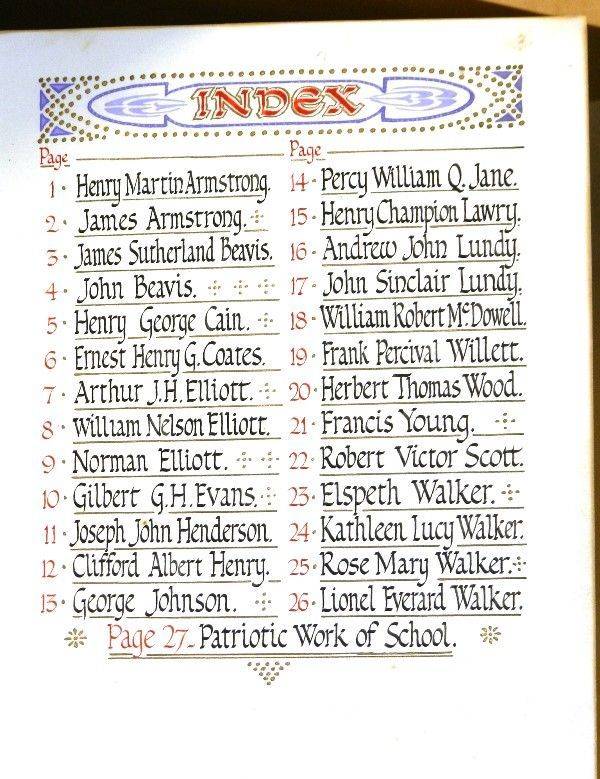 INDEX
Page
1. Henry Martin Armstrong.
2. James Armstrong.
3. James Sutherland Beavis.
4. John Beavis.
5. Henry George Cain.
6. Ernest Henry G. Coates.
7. Arthur J.H. Elliott.
8. William Nelson Elliott.
9. Norman Elliott.
10. Gilbert G.H. Evans.
11. Joseph John Henderson.
12. Clifford Albert Henry.
13. George Johnson.
Page
14. Percy William Q. Jane.
15. Henry Champion Lawry.
16. Andrew John Lundy.
17. John Sinclair Lundy.
18. William Robert McDowell.
19. Frank Percival Willett.
20. Herbert Thomas Wood.
21. Francis Young.
22. Robert Victor Scott.
23. Elspeth Walker.
24. Kathleen Lucy Walker.
25. Rose Mary Walker.
26. Lionel Everard Walker.
Page 27_ Patriotic Work of School.